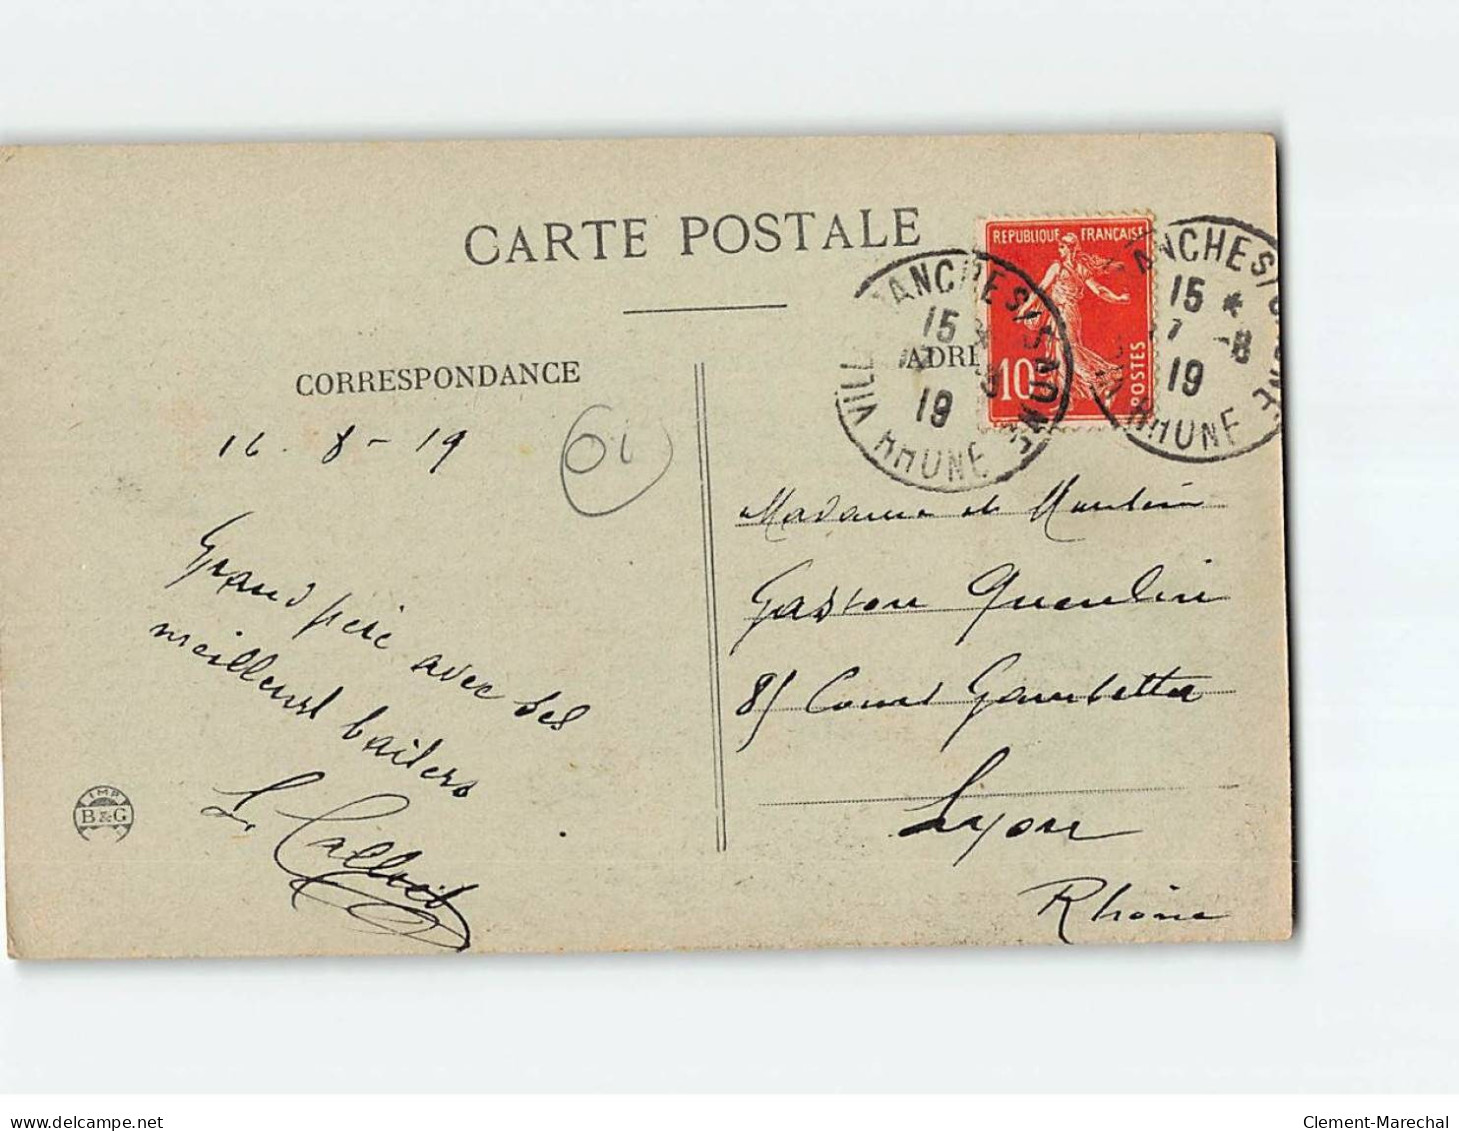 CARTE POSTALE
REPUBLIQUE FRANÇAISE
10
POSTES
VILL ANCHES/SAONE
15 *
-8
19
RHONE
ANCHES/S NE
15 *
17 -8
19
RHONE
CORRESPONDANCE
ADRE
16 - 8 - 19
01
Grand père avec ses
meilleurs baisers
L.
Madame de
Gaston Quentin
81 Cours Gambetta
Lyon
Rhône
IMP
B&G
www.delcampe.net
Clement-Marechal